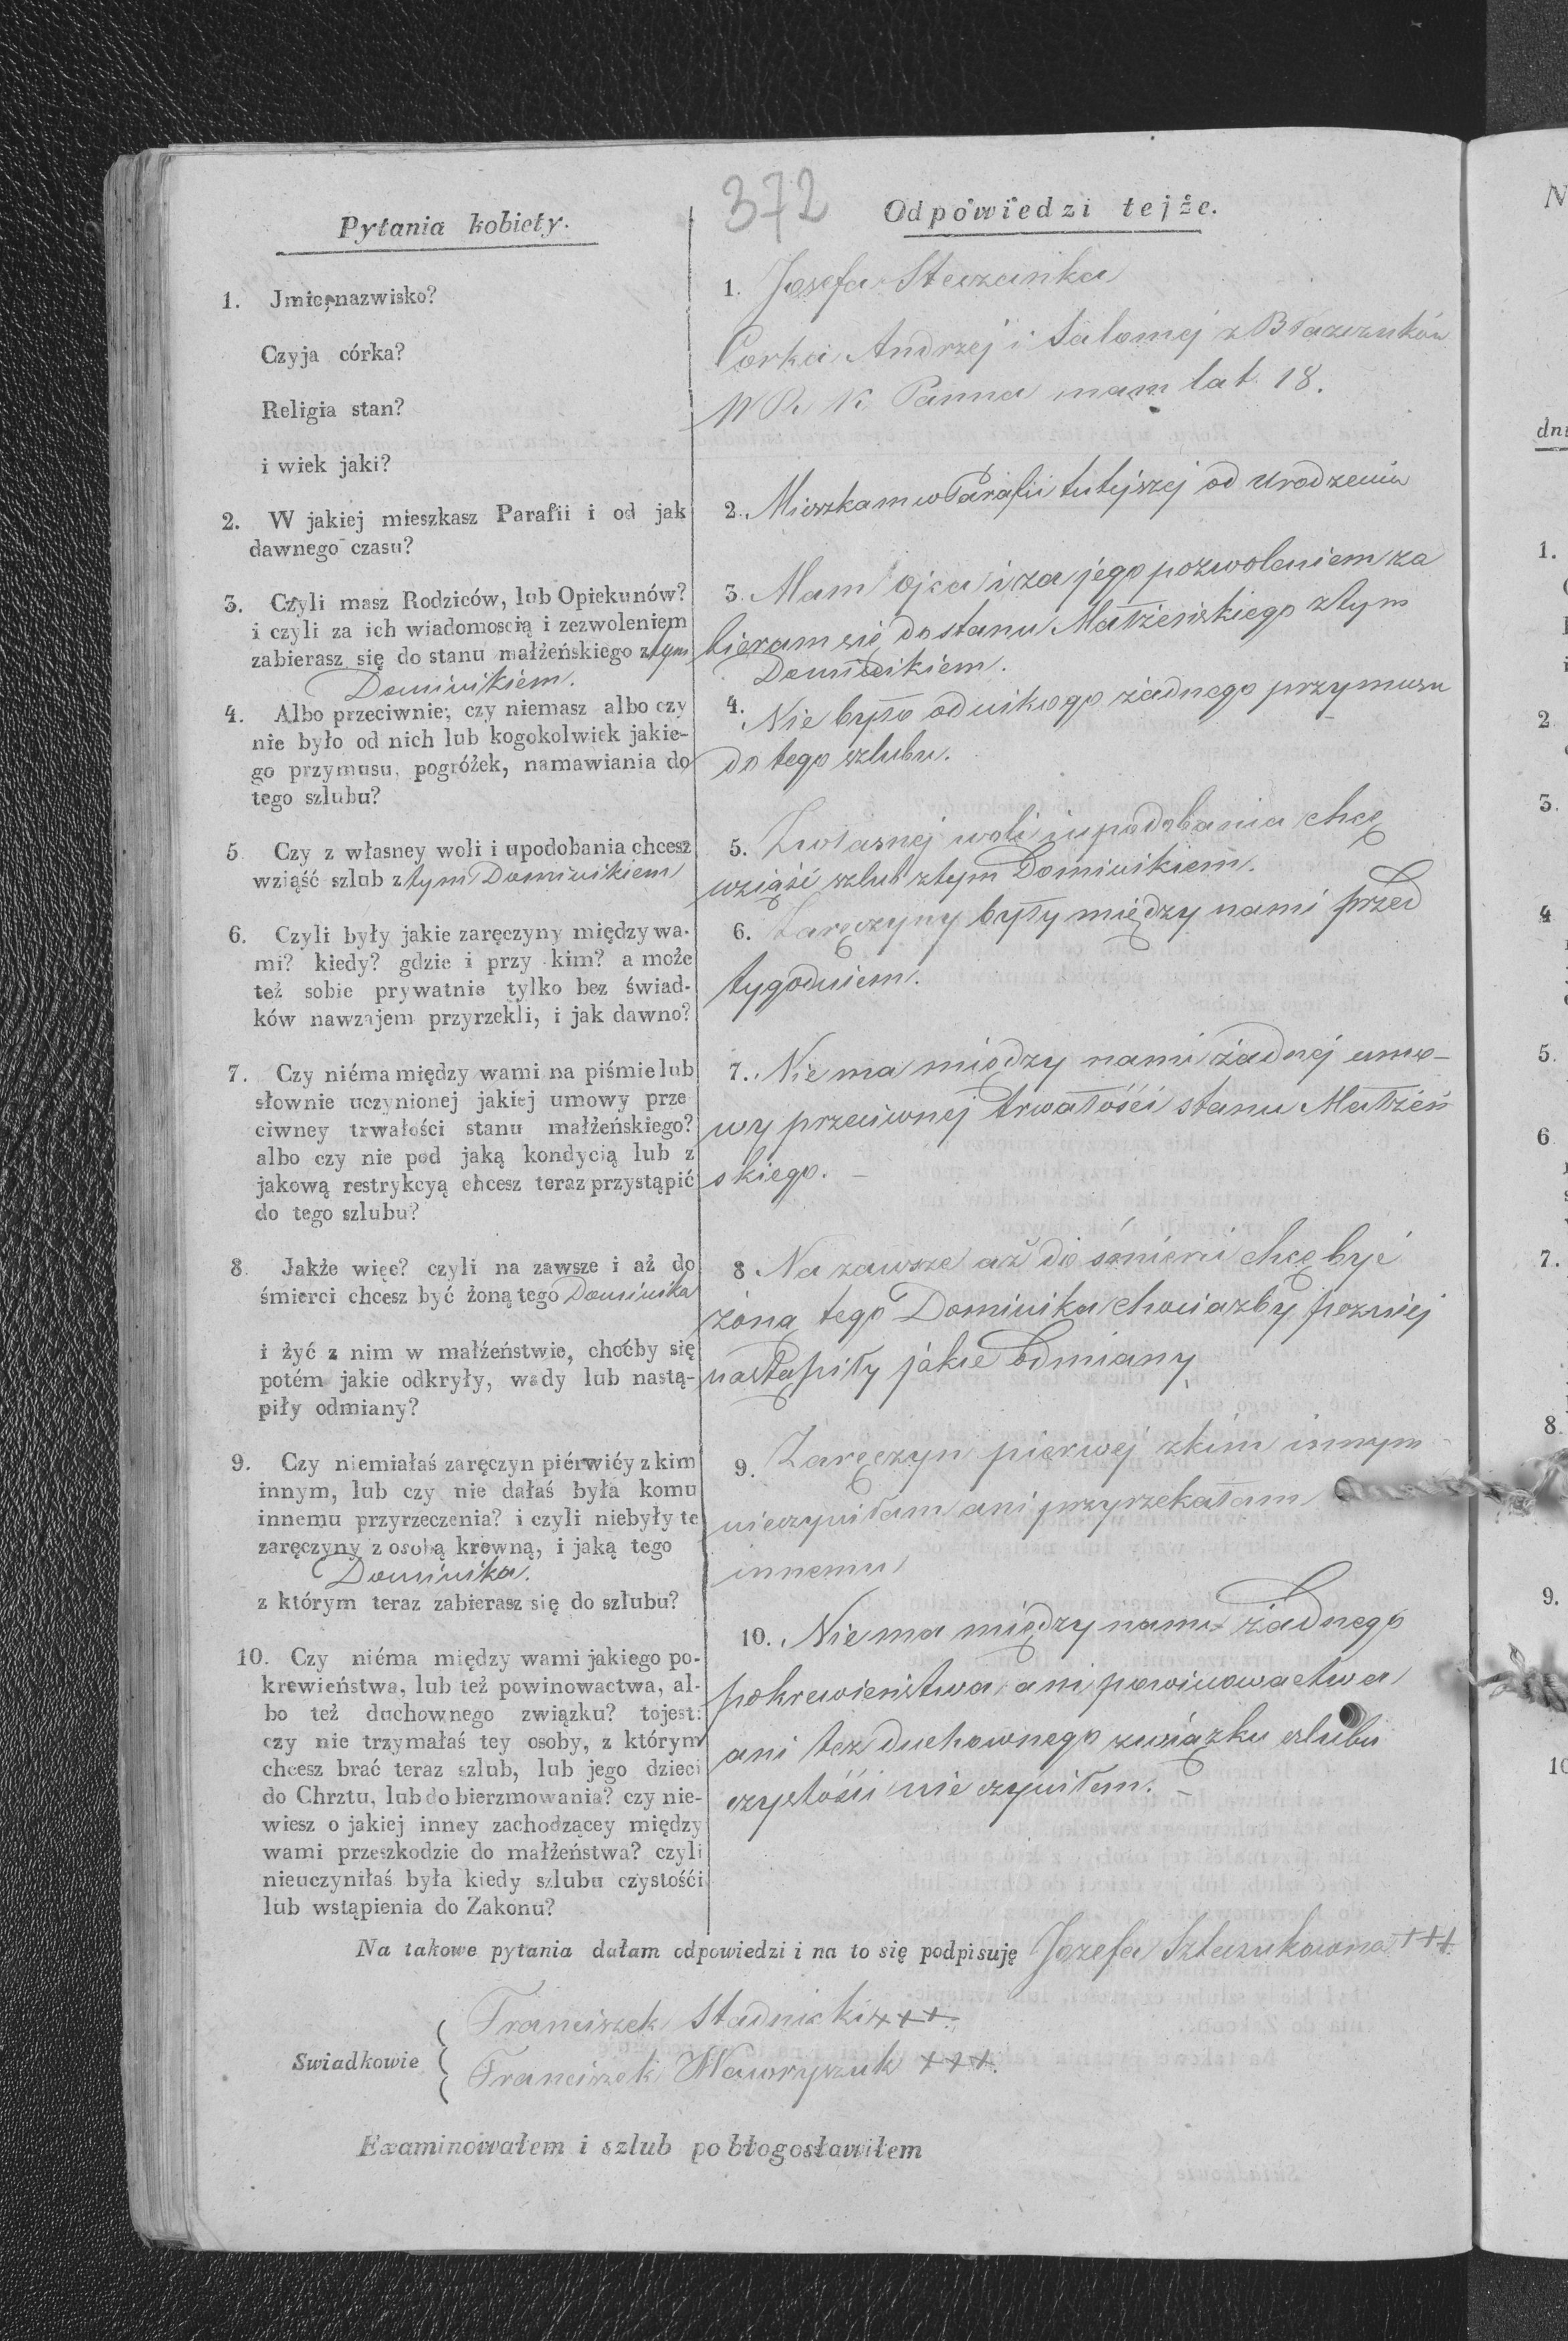 372
Pytania kobiety.
1. Jmie, nazwisko?
Czyja córka?
Religia stan?
i wiek jaki?
2. W jakiej mieszkasz Parafii i od jak
dawnego czasu?
3. Czyli masz Rodziców, lub Opiekunów?
i czyli za ich wiadomoscią i zezwoleniem
zabierasz się do stanu małżeńskiego z tym
Dominikiem.
4. Albo przeciwnie; czy niemasz albo czy
nie było od nich lub kogokolwiek jakie-
go przymusu, pogróżek, namawiania do
tego szlubu?
5 Czy z własney woli i upodobania chcesz
wziąść szlub z tym Dominikiem
6. Czyli były jakie zaręczyny między wa-
mi? kiedy? gdzie i przy kim? a może
też sobie prywatnie tylko bez świad-
ków nawzajem przyrzekli, i jak dawno?
7. Czy niéma między wami na piśmie lub
słownie uczynionej jakiej umowy prze
ciwney trwałości stanu małżeńskiego?
albo czy nie pod jaką kondycią lub z
jakową restrykcyą chcesz teraz przystąpić
do tego szlubu?
8. Jakże więc? czyli na zawsze i aż do
śmierci chcesz być żoną tego Dominika
i żyć z nim w małżeństwie, choćby się
potém jakie odkryły, wady lub nastą-
piły odmiany?
9. Czy niemiałaś zaręczyn piérwićy z kim
innym, lub czy nie dałaś była komu
innemu przyrzeczenia? i czyli niebyły te
zaręczyny z osobą krewną, i jaką tego
Dominika.
z którym teraz zabierasz się do szlubu?
10. Czy niéma między wami jakiego po-
krewieństwa, lub też powinowactwa, al-
bo też duchownego związku? tojest:
czy nie trzymałaś tey osoby, z którym
chcesz brać teraz szlub, lub jego dzieci
do Chrztu, lub do bierzmowania? czy nie-
wiesz o jakiej inney zachodzącey między
wami przeszkodzie do małżeństwa? czyli
nieuczyniłaś była kiedy szlubu czystośći
lub wstąpienia do Zakonu?
Odpowiedzi tejże.
1. Josefa
Corka Andrzej i Salomej z Błaszczuków
W R. K. Panna mam lat 18.
2. Mieszkam w Parafii tutejszej od urodzenia
3. Mam ojca i za jego pozwoleniem za
bieram się do stanu Małżeńskiego z tym
Dominikiem.
4. Nie było od nikogo żadnego przymusu
do tego szlubu.
5. Z własnej woli i upodobania chcę
wziąść szlub z tym Dominikiem.
6. Zaręczyny były między nami przed
tygodniem.
7. Nie ma między nami żadnej umo-
wy przeciwnej trwałości stanu Małżeń
skiego. –
8 Na zawsze aż do śmierci chcę być
żoną tego Dominika chociażby pozniej
nastąpiły jakie odmiany
9. Zaręczyn pierwej z kim innym
nieczyniłam ani przyrzekałam
innemu
10. Nie ma między nami żadnego
pokrewieństwa, ani powinowactwa
ani też duchownego związku szlubu
czystości nie czyniłem. –
Na takowe pytania dałam odpowiedzi i na to się podpisuję Jozefa +++
Swiadkowie
Franciszek Stadnicki +++
Franciszek Wawryszuk +++.
Examinowałem i szlub pobłogosławiłem
N
dni
1.
2
3.
4
5.
6
7.
8.
9.
10